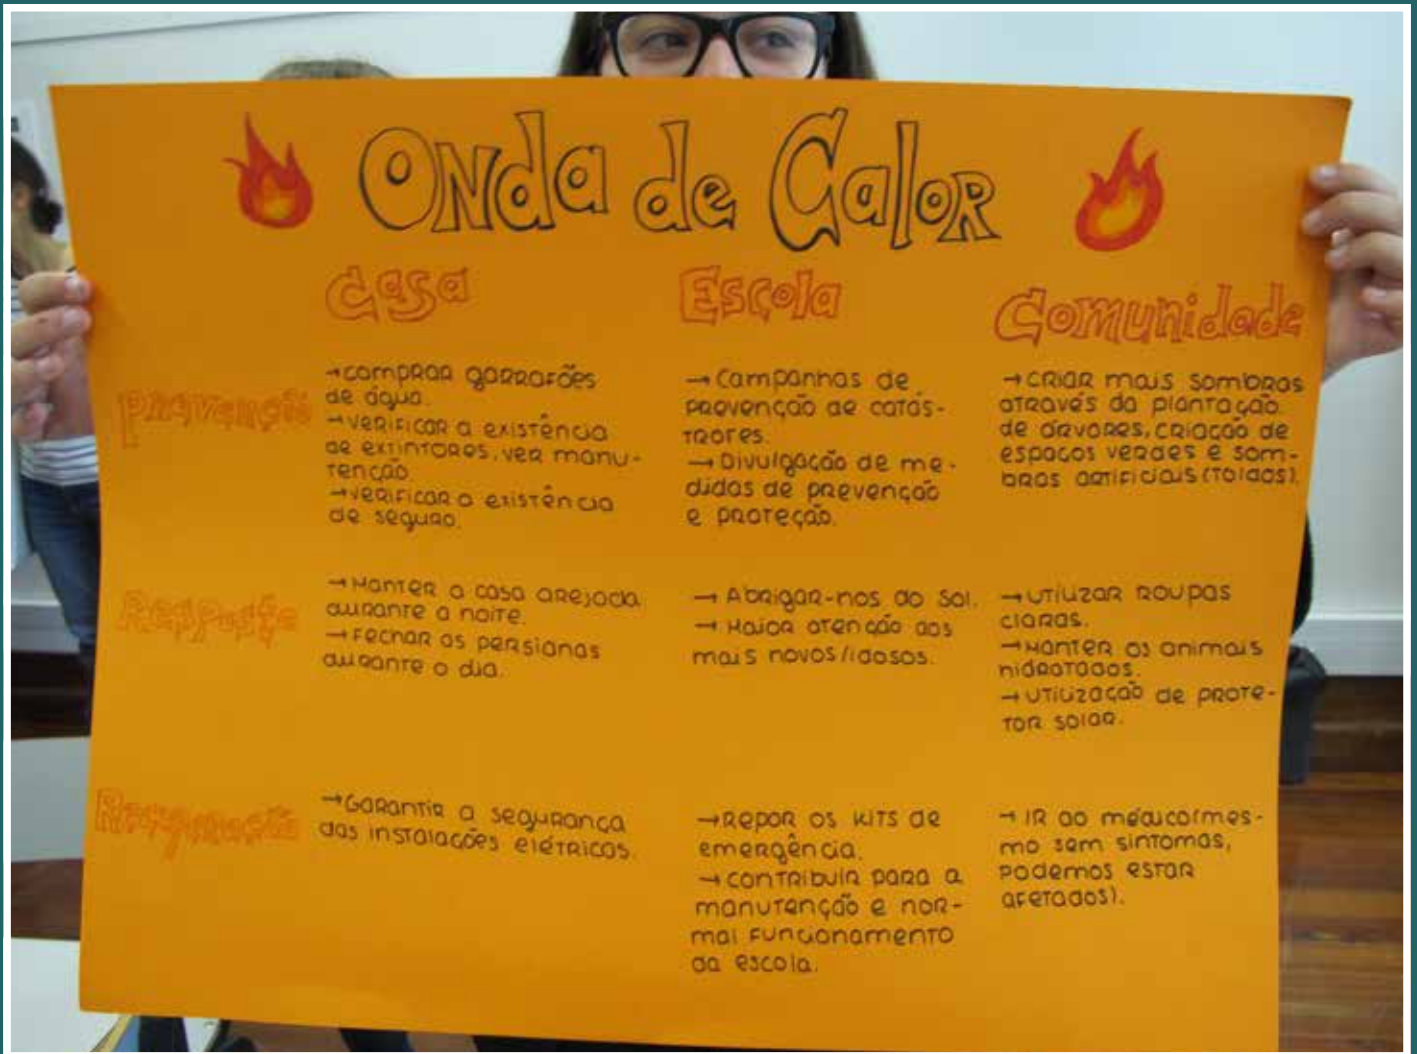 Onda de Calor
Casa
Escola
Comunidade
Prevenção
→ Comprar garrafões
de água.
→ Verificar a existência
de extintores, ver manu-
tenção.
→ Verificar a existência
de seguro.
→ Campanhas de
prevenção de catás-
trofes.
→ Divulgação de me-
didas de prevenção
e proteção.
→ Criar mais sombras
através da plantação
de árvores, criação de
espaços verdes e som-
bras artificiais (toldos).
Resposta
→ Manter a casa arejada
durante a noite.
→ Fechar as persianas
durante o dia.
→ Abrigar-nos do sol.
→ Maior atenção aos
mais novos/idosos.
→ Utilizar roupas
claras.
→ Manter os animais
hidratados.
→ Utilização de prote-
tor solar.
Recuperação
→ Garantir a segurança
das instalações elétricas.
→ Repor os kits de
emergência.
→ Contribuir para a
manutenção e nor-
mal funcionamento
da escola.
→ Ir ao médico (mes-
mo sem sintomas,
podemos estar
afetados).